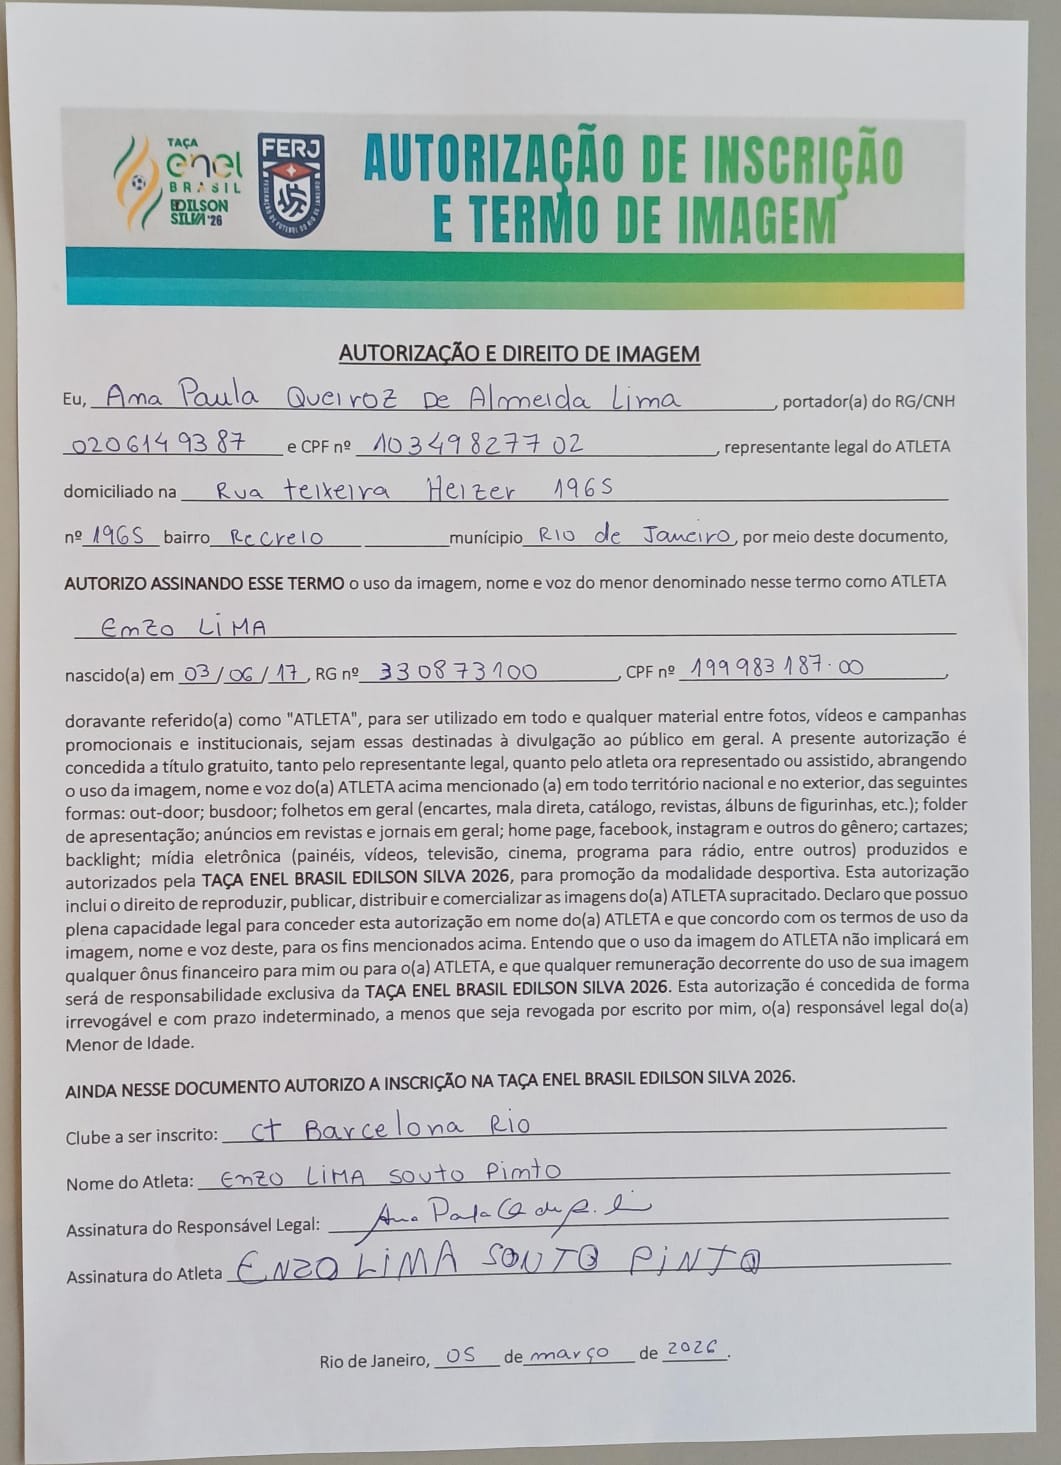 TAÇA
enel
BRASIL
EDILSON
SILVA '26
FERJ
FEDERAÇÃO DE FUTEBOL DO RIO DE JANEIRO
AUTORIZAÇÃO DE INSCRIÇÃO
E TERMO DE IMAGEM
AUTORIZAÇÃO E DIREITO DE IMAGEM
Eu, Ana Paula Queiroz De Almeida Lima, portador(a) do RG/CNH
0206149387 e CPF nº 10349827702, representante legal do ATLETA
domiciliado na Rua teixeira Heizer 1965
nº 1965 bairro Recreio munícipio Rio de Janeiro, por meio deste documento,
AUTORIZO ASSINANDO ESSE TERMO o uso da imagem, nome e voz do menor denominado nesse termo como ATLETA
Enzo LiMA
nascido(a) em 03/06/17, RG nº 330873100, CPF nº 199983187.00,
doravante referido(a) como "ATLETA", para ser utilizado em todo e qualquer material entre fotos, vídeos e campanhas
promocionais e institucionais, sejam essas destinadas à divulgação ao público em geral. A presente autorização é
concedida a título gratuito, tanto pelo representante legal, quanto pelo atleta ora representado ou assistido, abrangendo
o uso da imagem, nome e voz do(a) ATLETA acima mencionado (a) em todo território nacional e no exterior, das seguintes
formas: out-door; busdoor; folhetos em geral (encartes, mala direta, catálogo, revistas, álbuns de figurinhas, etc.); folder
de apresentação; anúncios em revistas e jornais em geral; home page, facebook, instagram e outros do gênero; cartazes;
backlight; mídia eletrônica (painéis, vídeos, televisão, cinema, programa para rádio, entre outros) produzidos e
autorizados pela TAÇA ENEL BRASIL EDILSON SILVA 2026, para promoção da modalidade desportiva. Esta autorização
inclui o direito de reproduzir, publicar, distribuir e comercializar as imagens do(a) ATLETA supracitado. Declaro que possuo
plena capacidade legal para conceder esta autorização em nome do(a) ATLETA e que concordo com os termos de uso da
imagem, nome e voz deste, para os fins mencionados acima. Entendo que o uso da imagem do ATLETA não implicará em
qualquer ônus financeiro para mim ou para o(a) ATLETA, e que qualquer remuneração decorrente do uso de sua imagem
será de responsabilidade exclusiva da TAÇA ENEL BRASIL EDILSON SILVA 2026. Esta autorização é concedida de forma
irrevogável e com prazo indeterminado, a menos que seja revogada por escrito por mim, o(a) responsável legal do(a)
Menor de Idade.
AINDA NESSE DOCUMENTO AUTORIZO A INSCRIÇÃO NA TAÇA ENEL BRASIL EDILSON SILVA 2026.
Clube a ser inscrito: CT Barcelona Rio
Nome do Atleta: Enzo LiMA Souto Pinto
Assinatura do Responsável Legal: Ana Paula Q de
Assinatura do Atleta ENZO LiMA SOUTO PiNTO
Rio de Janeiro, 05 de março de 2026.